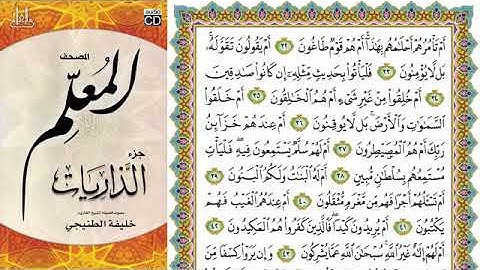 audio
CD
المصحف
المعلم
جزء
الذاريات
خليفة الطنيجي
أَمْ تَأْمُرُهُمْ أَحْلَٰمُهُم بِهَٰذَآ ۚ أَمْ هُمْ قَوْمٌ طَاغُونَ ٣٢ أَمْ يَقُولُونَ تَقَوَّلَهُۥ ۚ
بَل لَّا يُؤْمِنُونَ ٣٣ فَلْيَأْتُوا۟ بِحَدِيثٍ مِّثْلِهِۦٓ إِن كَانُوا۟ صَٰدِقِينَ
٣٤ أَمْ خُلِقُوا۟ مِنْ غَيْرِ شَىْءٍ أَمْ هُمُ ٱلْخَٰلِقُونَ ٣٥ أَمْ خَلَقُوا۟
ٱلسَّمَٰوَٰتِ وَٱلْأَرْضَ ۚ بَل لَّا يُوقِنُونَ ٣٦ أَمْ عِندَهُمْ خَزَآئِنُ
رَبِّكَ أَمْ هُمُ ٱلْمُصَۣيْطِرُونَ ٣٧ أَمْ لَهُمْ سُلَّمٌ يَسْتَمِعُونَ فِيهِ ۖ فَلْيَأْتِ
مُسْتَمِعُهُم بِسُلْطَٰنٍ مُّبِينٍ ٣٨ أَمْ لَهُ ٱلْبَنَٰتُ وَلَكُمُ ٱلْبَنُونَ ٣٩
أَمْ تَسْـَٔلُهُمْ أَجْرًا فَهُم مِّن مَّغْرَمٍ مُّثْقَلُونَ ٤٠ أَمْ عِندَهُمُ ٱلْغَيْبُ فَهُمْ
يَكْتُبُونَ ٤١ أَمْ يُرِيدُونَ كَيْدًا ۖ فَٱلَّذِينَ كَفَرُوا۟ هُمُ ٱلْمَكِيدُونَ ٤٢
أَمْ لَهُمْ إِلَٰهٌ غَيْرُ ٱللَّهِ ۚ سُبْحَٰنَ ٱللَّهِ عَمَّا يُشْرِكُونَ ٤٣ وَإِن يَرَوْا۟ كِسْفًا مِّنَ